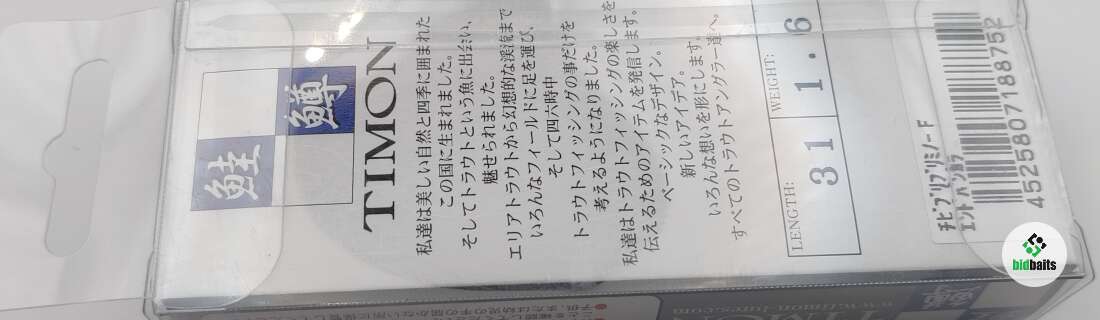 鮭
鱒
TIMON
私達は美しい自然と四季に囲まれた
この国に生まれました。
そしてトラウトという魚に出会い、
魅せられました。
エリアトラウトから幻想的な渓流まで
いろんなフィールドに足を運び、
そして四六時中
トラウトフィッシングの事だけを
考えるようになりました。
私達はトラウトフィッシングの楽しさを
伝えるためのアイテムを発信します。
ベーシックなデザイン。
新しいアイデア。
いろんな想いを形にします。
すべてのトラウトアングラー達へ。
LENGTH:
31
WEIGHT:
1.6
チビプリプリミノーF
エンドバンカラ
4525807188752
bidbaits